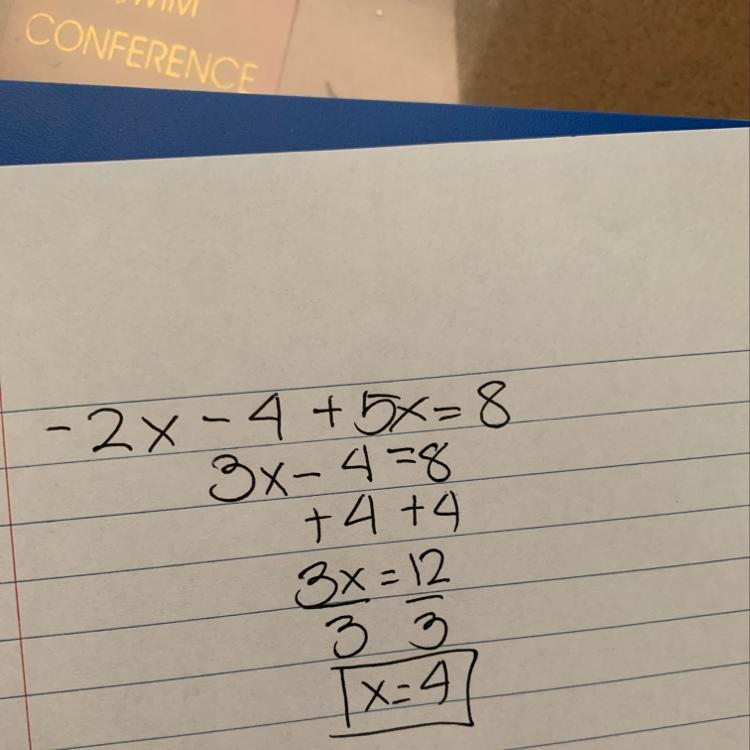 CONFERENCE
-2x - 4 + 5x = 8
3x - 4 = 8
+4 +4
3x = 12
3 3
x = 4